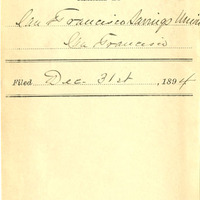 San Francisco Savings Union
San Francisco
Filed Dec. 31st, 1894